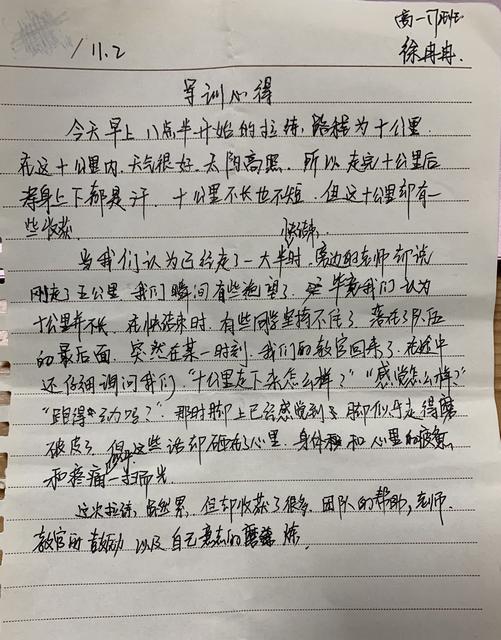 高一17班
11.2
徐冉冉.
军训心得
今天早上八点半开始的拉练,路程为十公里.
在这十公里内,天气很好,太阳高照.所以走完十公里后
浑身上下都是汗.十公里不长也不短.但这十公里却有一
些收获.
快结束.
当我们认为已经走了一大半时,旁边的老师却说
刚走了五公里.我们瞬间有些绝望了.毕竟我们认为
十公里并不长.在快结束时,有些同学坚持不住了.落在了队伍
的最后面.突然在某一时刻,我们的教官回来了.在途中
还仔细询问我们,“十公里走下来怎么样?”“感觉怎么样?”
“跑得动吗?”那时脚上已经感觉到脚似乎走得磨
破皮了.但这些话却砸在了心里.身体和心里的疲惫
和疼痛一扫而光.
这次拉练,虽然累,但却收获了很多.团队的帮助,老师.
教官的鼓励以及自己意志的磨炼.